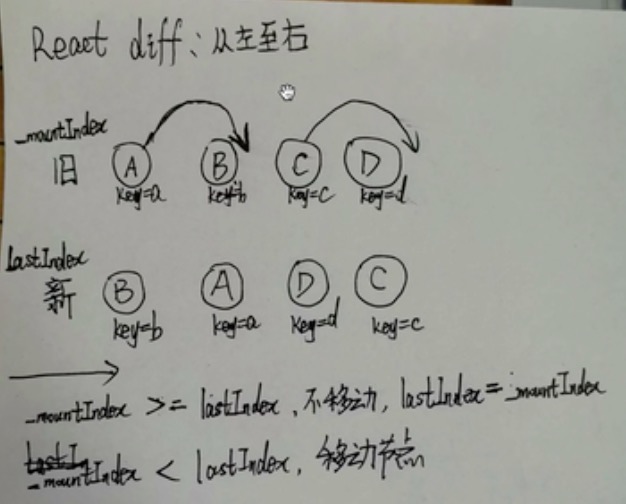 React diff: 从左至右
_mountIndex
旧 A B C D
key=a key=b key=c key=d
lastIndex
新 B A D C
key=b key=a key=d key=c
_mountIndex >= lastIndex, 不移动, lastIndex = _mountIndex
lastIn
_mountIndex < lastIndex, 移动节点